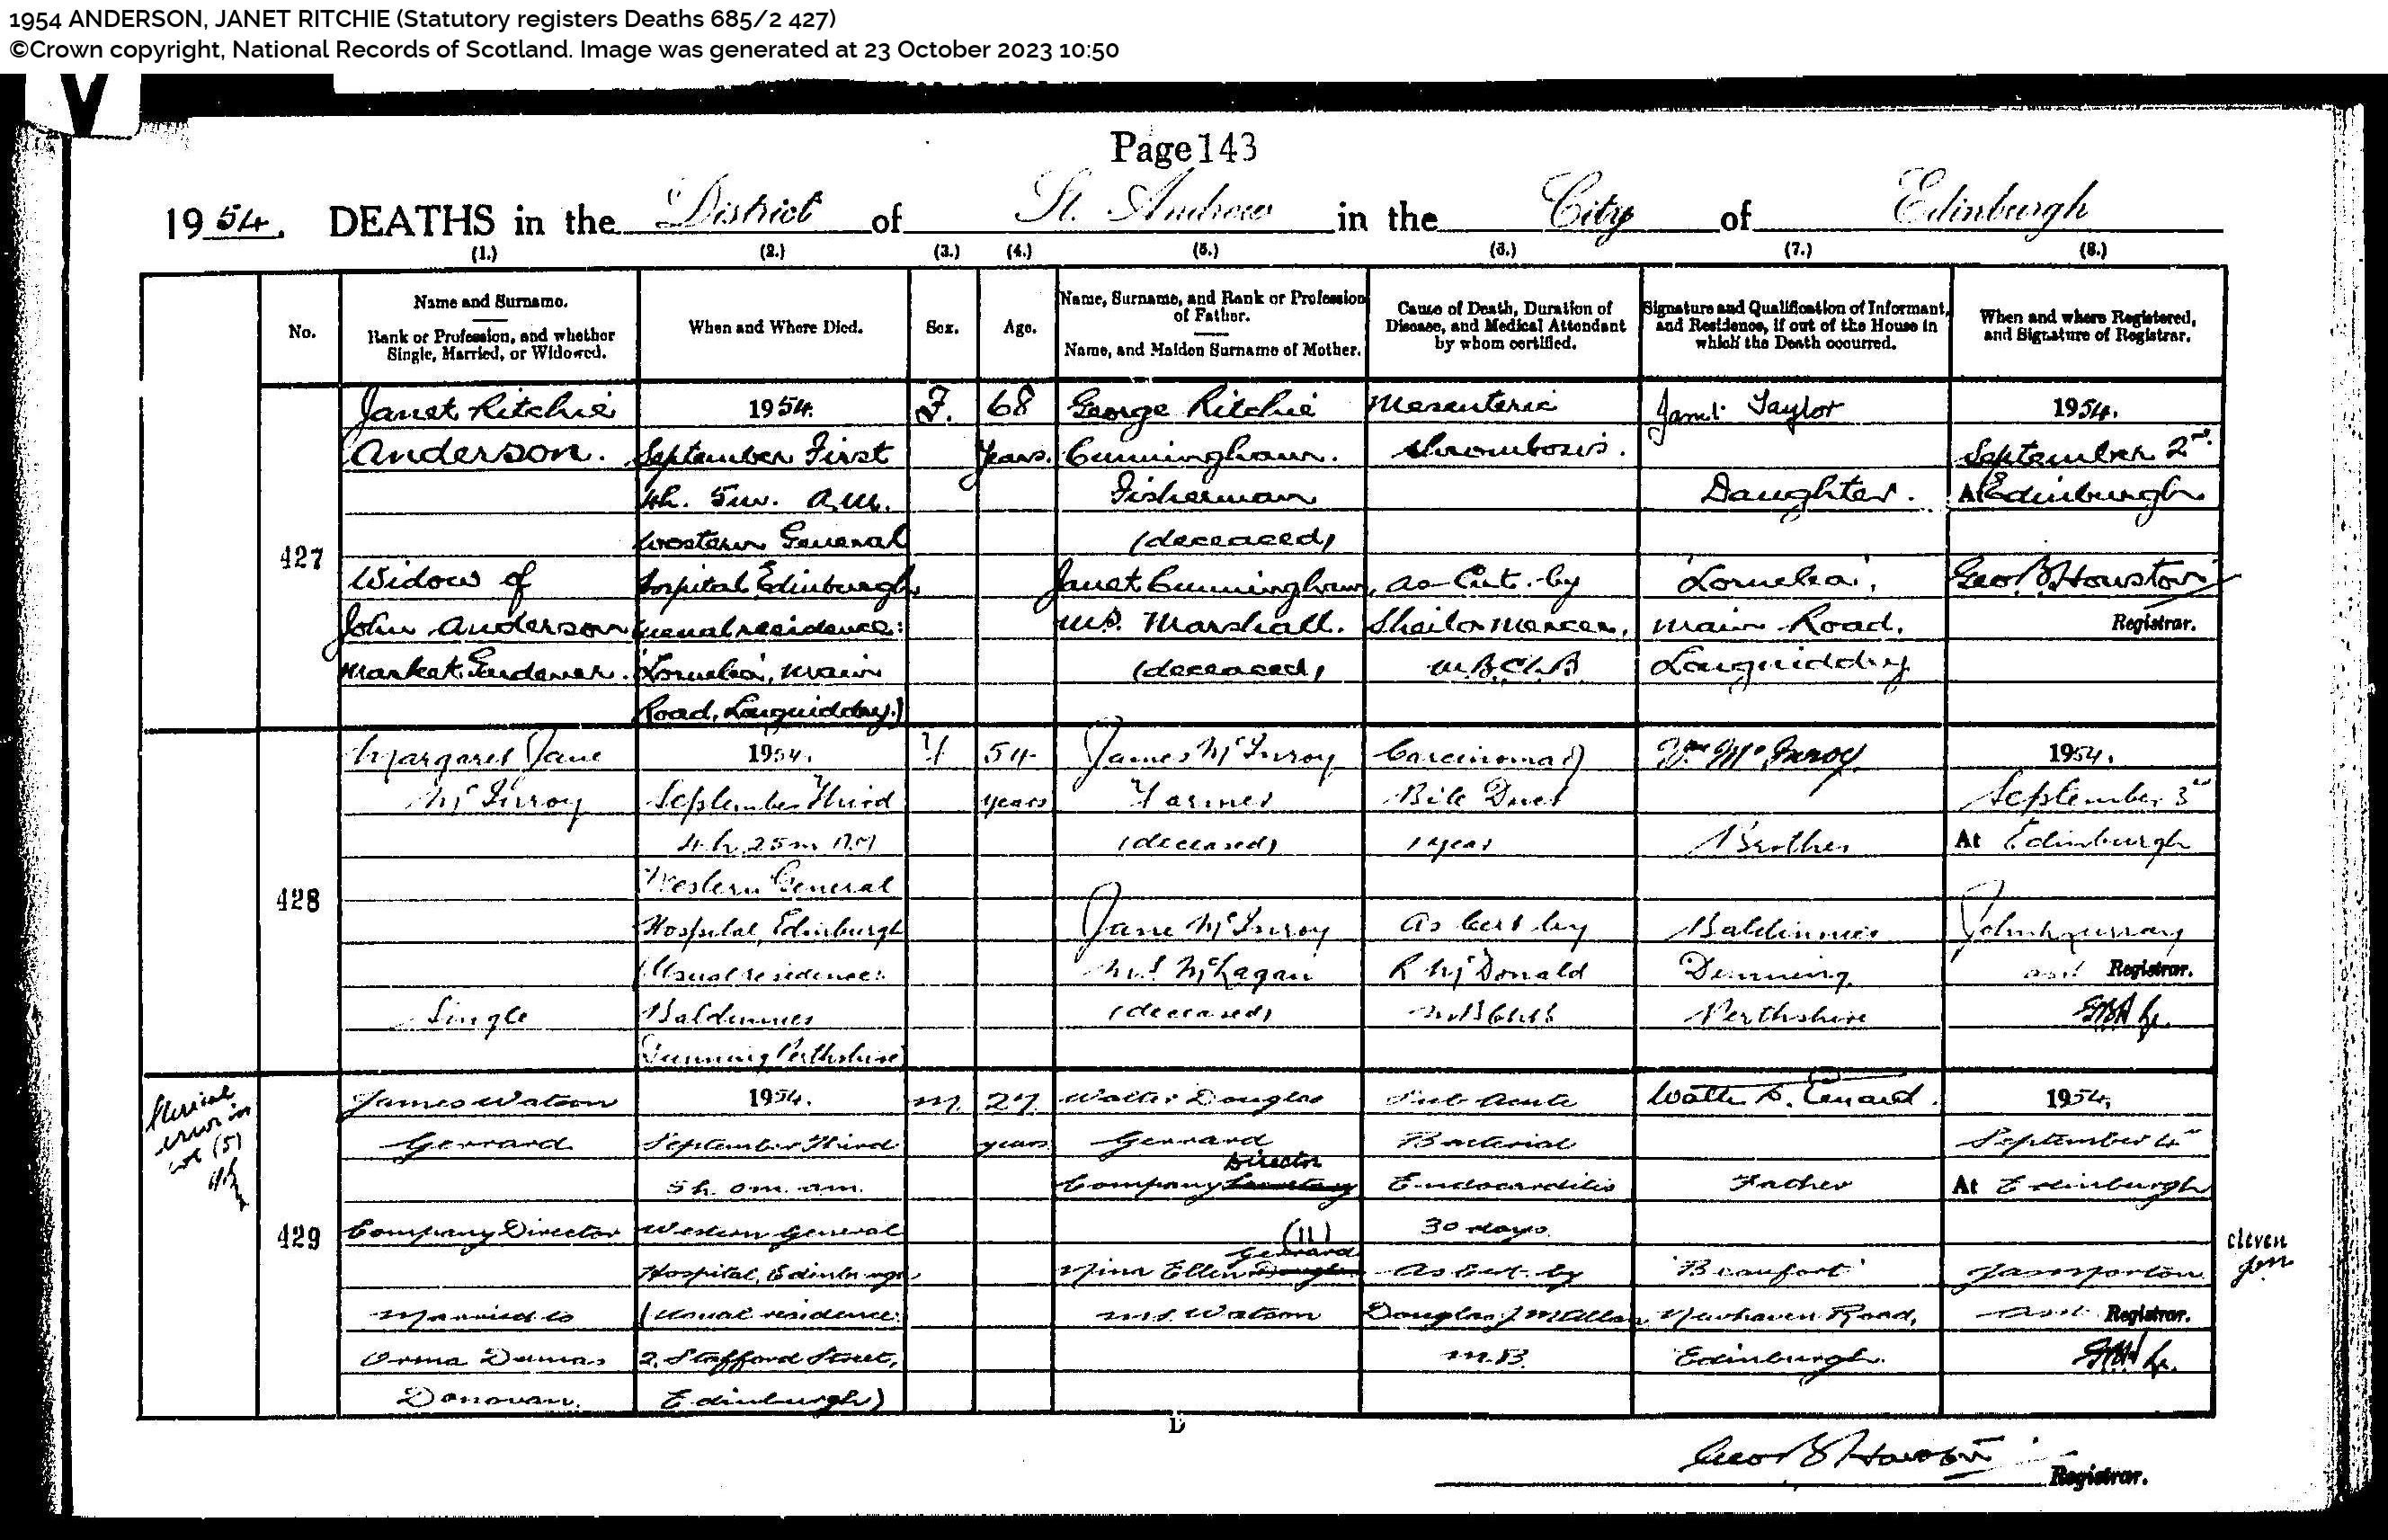 1954 ANDERSON, JANET RITCHIE (Statutory registers Deaths 685/2 427)
©Crown copyright, National Records of Scotland. Image was generated at 23 October 2023 10:50
Page 143
1954. DEATHS in the District of St. Andrew in the City of Edinburgh
(1.) (2.) (3.) (4.) (5.) (6.) (7.) (8.)
No.
Name and Surname.
Rank or Profession, and whether
Single, Married, or Widowed.
When and Where Died.
Sex.
Age.
Name, Surname, and Rank or Profession
of Father.
Name, and Maiden Surname of Mother.
Cause of Death, Duration of
Disease, and Medical Attendant
by whom certified.
Signature and Qualification of Informant,
and Residence, if out of the House in
which the Death occurred.
When and where Registered,
and Signature of Registrar.
427
Janet Ritchie
Anderson.
Widow of
John Anderson
Market Gardener.
1954.
September First
4h. 5m. A.M.
Western General
Hospital, Edinburgh
(usual residence:
Main
Road, Longniddry.)
F.
68
Years.
George Ritchie
Cunningham.
Fisherman
(deceased)
Janet Cunningham,
m.s. Marshall.
(deceased)
Mesenteric
thrombosis.
as Cert. by
Sheila Mercer,
M.B.Ch.B.
Taylor
Daughter.
Main Road,
Longniddry
1954.
September 2nd.
At Edinburgh
Geo. B. Houston
Registrar.
428
Margaret Jane
McInroy
Single
1954.
September Third
4h. 25m
Western General
Hospital, Edinburgh
(Usual residence:
Baldinnies
Dunning Perthshire)
F
54
years
James McInroy
Farmer
(deceased)
Jane McInroy
m.s. McLagan
(deceased)
Carcinoma of
Bile Duct
1 year
As Cert by
R McDonald
M.B Ch.B
McInroy
Brother
Baldinnies
Dunning
Perthshire
1954.
September 3rd
At Edinburgh
John Murray
asst Registrar.
Clerical
error in
col (5)
429
James Watson
Gerrard
Company Director
Married to
Orma Dumas
Donovan.
1954.
September Third
5h. 0m. am.
Western General
Hospital, Edinburgh
(Usual residence:
2, Stafford Street,
Edinburgh)
M.
27
years
Walter Douglas
Gerrard
Director
Company Secretary
(11)
Gerrard
Nina Ellen Douglas
m.s. Watson
Sub Acute
Bacterial
Endocarditis
30 days.
As Cert. by
Douglas J. McAllan
M.B.
Gerrard.
Father
'Beaufort'
Newhaven Road,
Edinburgh.
1954.
September 4th
At Edinburgh
Jas Morton
Asst. Registrar.
eleven
D
Geo B Houston
Registrar.